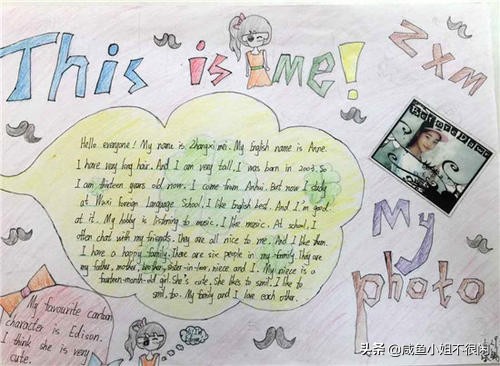 This is me!
ZXM
Hello everyone! My name is Zhangxi mei. My English name is Anne.
I have very long hair. And I am very tall. I was born in 2003. So
I am thirteen years old now. I come from Anhui. But now I study
at Wuxi Foreign Language School. I like English best. And I'm good
at it. My hobby is listening to music. I like music. At school, I
often chat with my friends. They are all nice to me. And I like them.
I have a happy family. There are six people in my family. They are
my father, mother, brother, sister-in-law, niece and I. My niece is a
fourteen-month-old girl. She's cute. She likes to smile. I like to
smile, too. My family and I love each other.
My
photo
My favourite cartoon
character is Edison.
I think she is very
cute.
头条 @咸鱼小姐不很闲